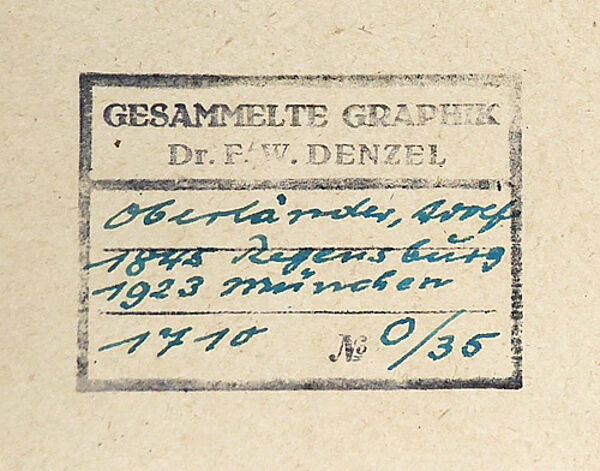 GESAMMELTE GRAPHIK
Dr. F. W. DENZEL
Oberländer, Adolf
1845 Regensburg
1923 München
1710 № O/35